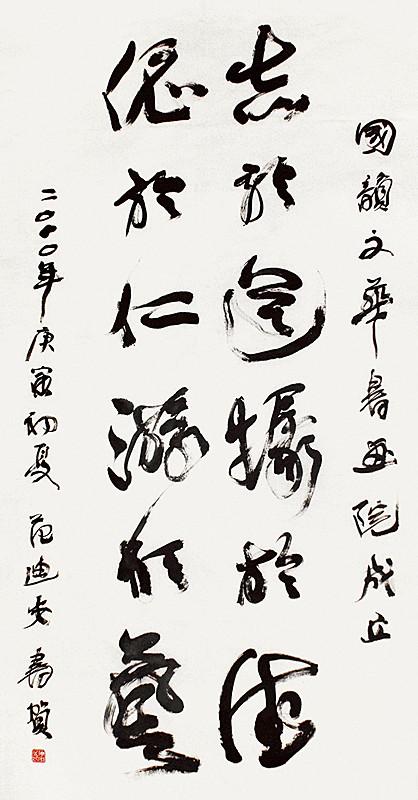 國韻文華書画院成立
志於道據於德
依於仁游於藝
二〇一〇年庚寅初夏 范迪安書賀